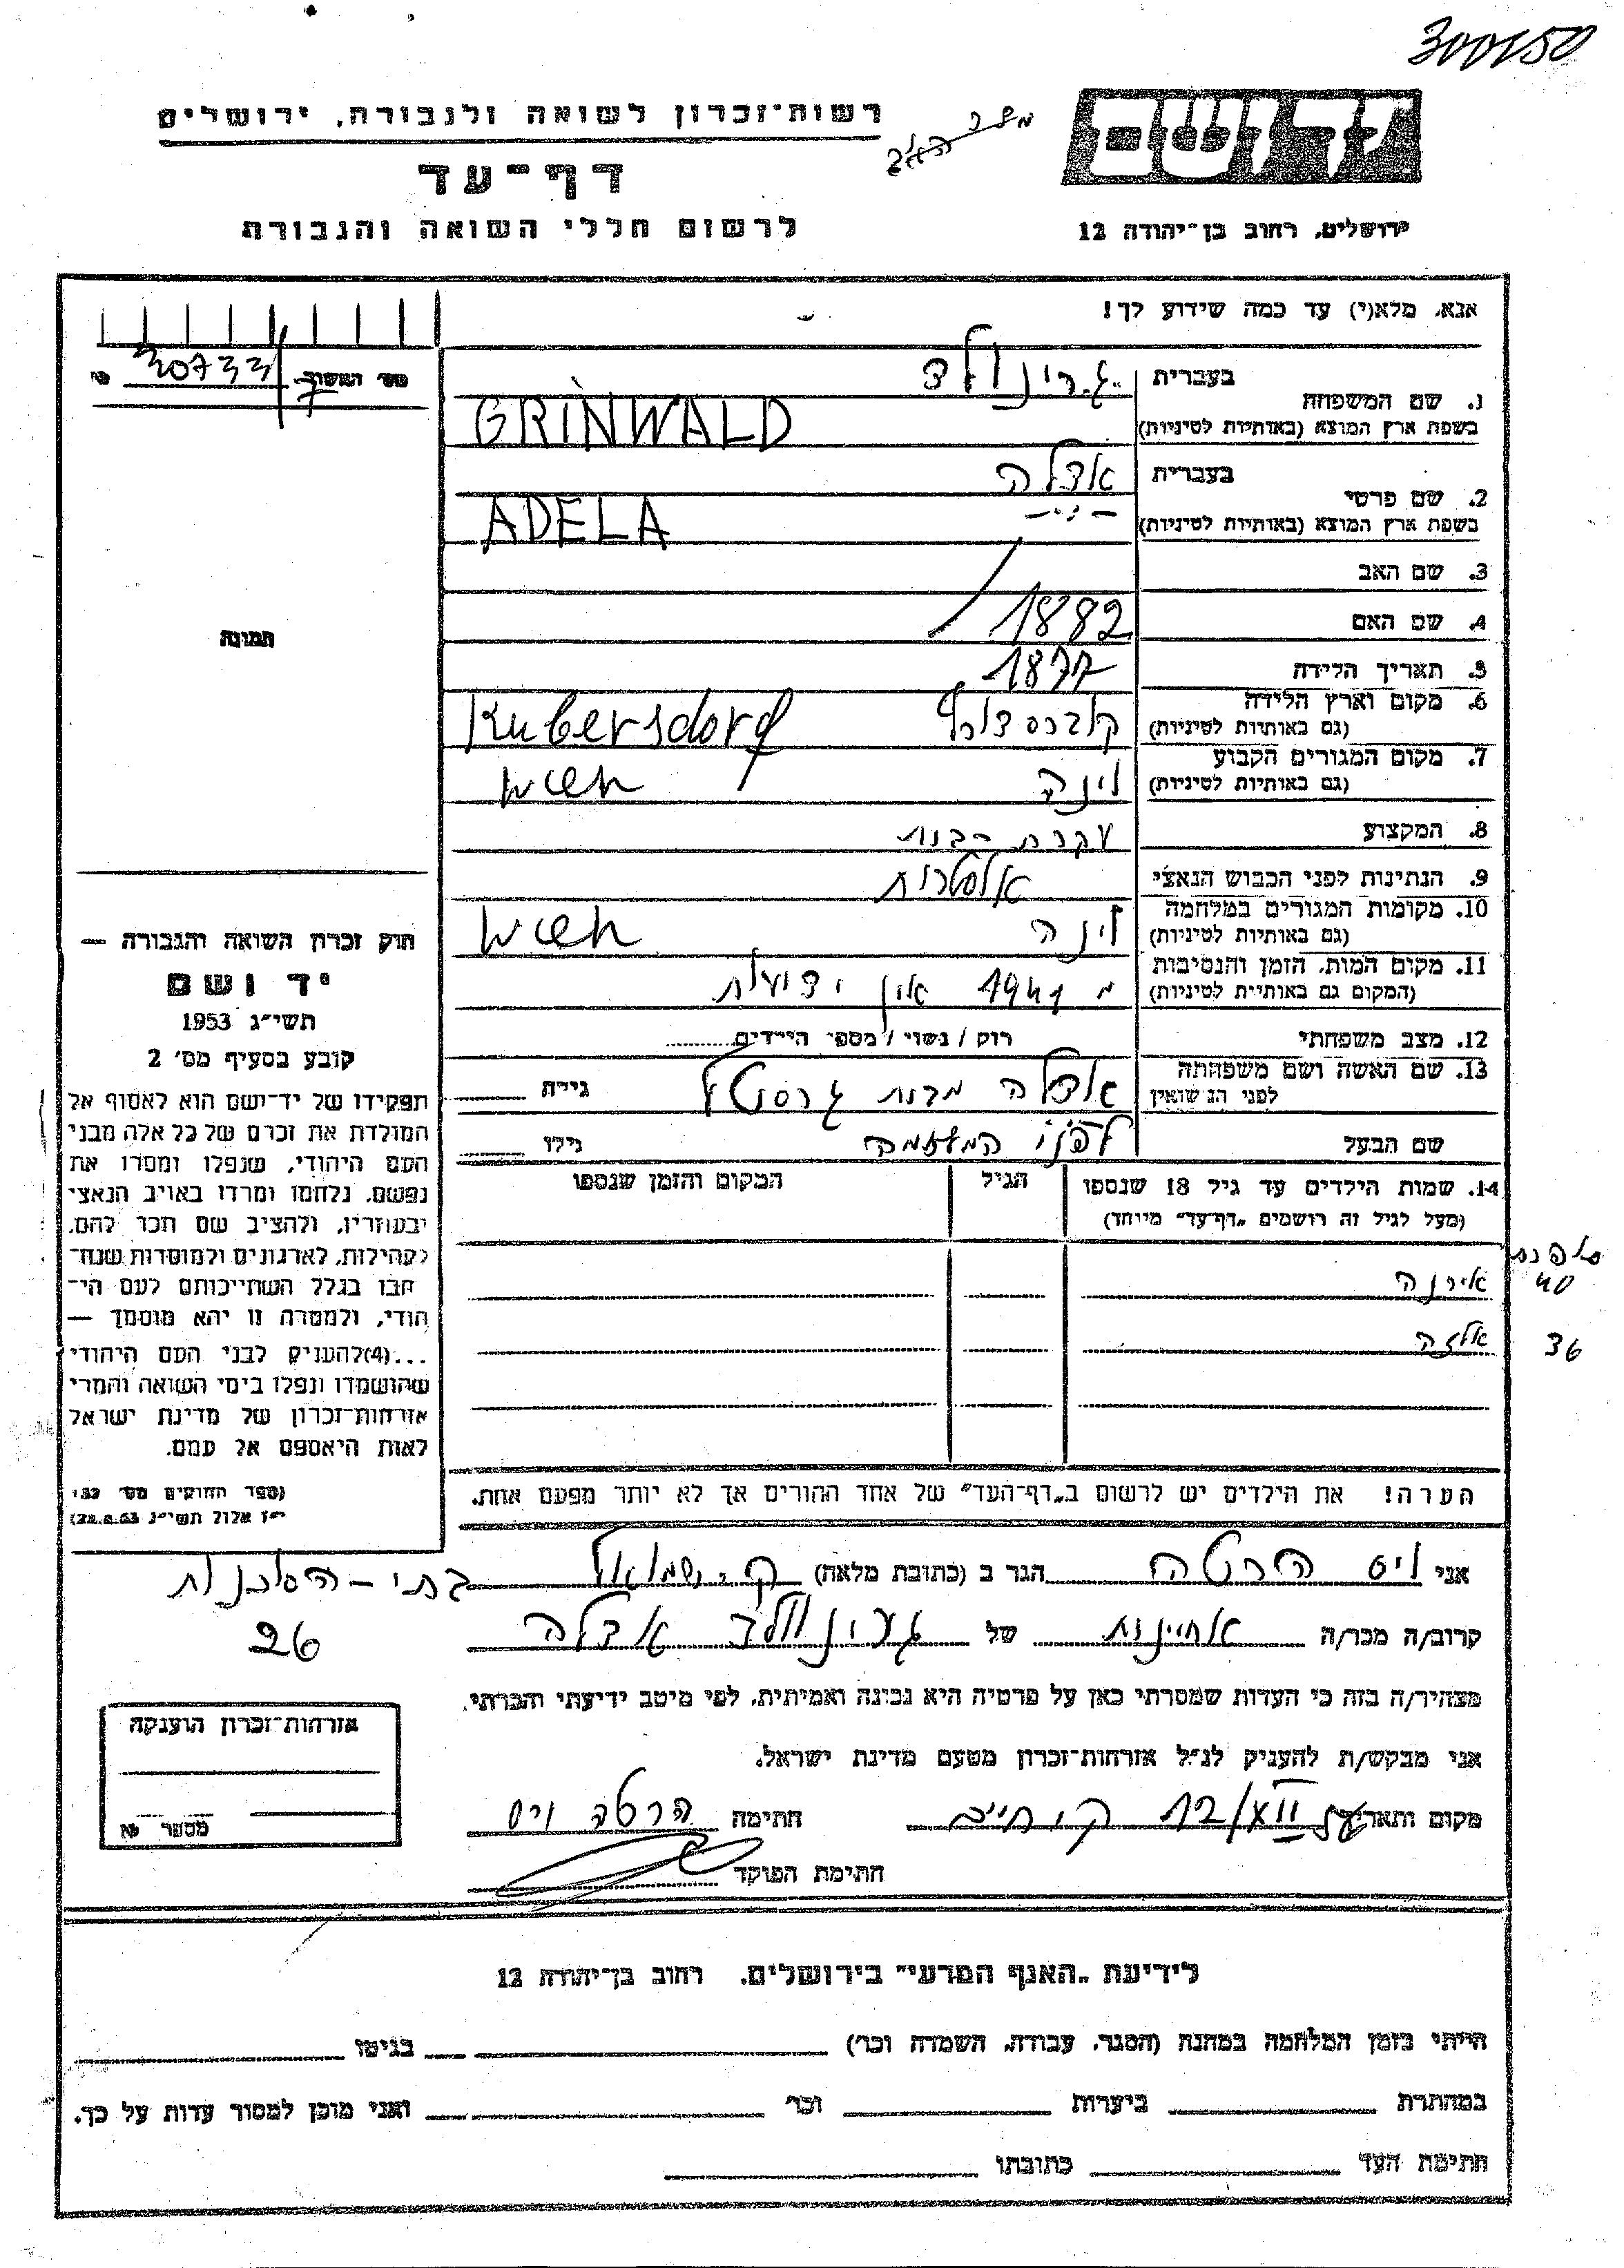 300150
רשות־זכרון לשואה ולגבורה, ירושלים
דף־עד
לרשום חללי השואה והגבורה
ידושם
ירושלים, רחוב בן־יהודה 12
אנא, מלא(י) עד כמה שידוע לך!
מס' האשור 30733/7 №
בעברית גרינולד
1. שם המשפחה
בשפת ארץ המוצא (באותיות לטיניות) GRINWALD
בעברית אדלה
2. שם פרטי
בשפת ארץ המוצא (באותיות לטיניות) ADELA
3. שם האב
4. שם האם 1882
תמונה
5. תאריך הלידה 1877
6. מקום וארץ הלידה
(גם באותיות לטיניות) קוברסדורף Kubersdorf
7. מקום המגורים הקבוע
(גם באותיות לטיניות) וינה Wien
8. המקצוע עקרת הבית
9. הנתינות לפני הכבוש הנאצי אוסטרית
10. מקומות המגורים במלחמה
(גם באותיות לטיניות) וינה Wien
11. מקום המות, הזמן והנסיבות
(המקום גם באותיות לטיניות) מ 1941 אין ידיעות
12. מצב משפחתי רוק / נשוי / מספר הילדים
13. שם האשה ושם משפחתה
לפני הנשואין אדלה מבית גילה
שם הבעל לפני המלחמה גילו
14. שמות הילדים עד גיל 18 שנספו הגיל המקום והזמן שנספו
(מעל לגיל זה רושמים „דף־עד” מיוחד)
אירנה 40
אלזה 36
חוק זכרון השואה והגבורה —
יד ושם
תשי״ג 1953
קובע בסעיף מס׳ 2
תפקידו של יד־ושם הוא לאסוף אל
המולדת את זכרם של כל אלה מבני
העם היהודי, שנפלו ומסרו את
נפשם, נלחמו ומרדו באויב הנאצי
ובעוזריו, ולהציב שם וזכר להם,
לקהילות, לארגונים ולמוסדות שנח־
רבו בגלל השתייכותם לעם הי־
הודי, ולמטרה זו יהא מוסמך —
...(4) להעניק לבני העם היהודי
שהושמדו ונפלו בימי השואה והמרי
אזרחות־זכרון של מדינת ישראל
לאות היאספם אל עמם.
(ספר החוקים מס׳ 132
י״ז אלול תשי״ג 28.8.53)
הערה! את הילדים יש לרשום ב„דף־העד” של אחד ההורים אך לא יותר מפעם אחת.
אני ויס הרטה הגר ב (כתובת מלאה) ק. שמואל בתי־הסוכנות
26
קרוב/ה מכר/ה אחיינית של גרינוולד אדלה
מצהיר/ה בזה כי העדות שמסרתי כאן על פרטיה היא נכונה ואמיתית, לפי מיטב ידיעתי והכרתי.
אני מבקש/ת להעניק לנ״ל אזרחות־זכרון מטעם מדינת ישראל.
מקום ותאריך 12/XII חתימה הרטה ויס
חתימת הפוקד
אזרחות־זכרון הוענקה
מספר №
לידיעת „האגף המדעי” בירושלים, רחוב בן־יהודה 12
הייתי בזמן המלחמה במחנה (הסגר, עבודה, השמדה וכו׳) בגיטו
במחתרת ביערות וכו׳ ואני מוכן למסור עדות על כך.
חתימת העד כתובתו